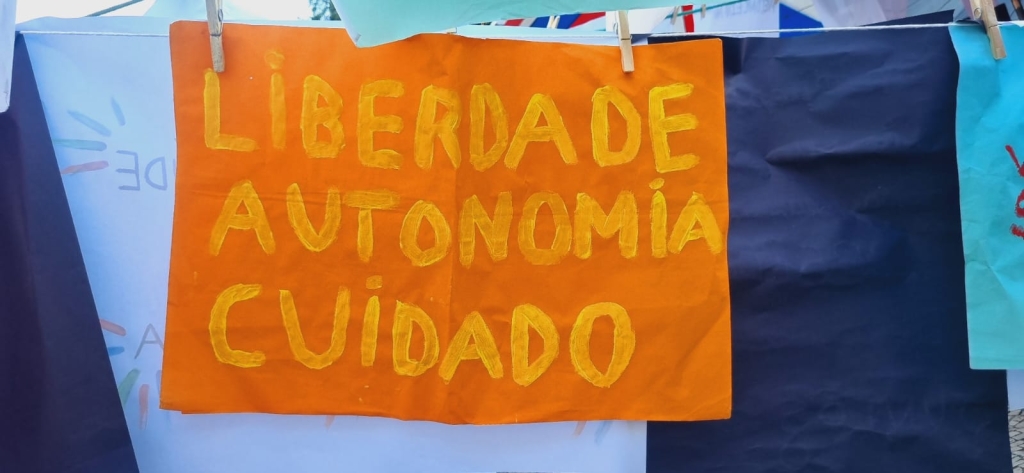 LIBERDADE
AUTONOMIA
CUIDADO